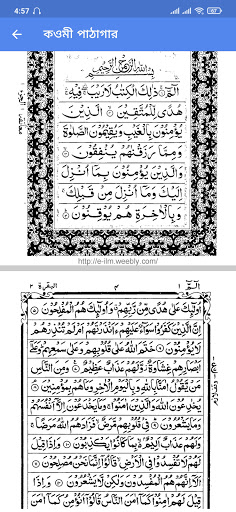 4:57
কওমী পাঠাগার
بِسْمِ اللهِ الرَّحْمٰنِ الرَّحِيْمِ
الٓمّٓ ذٰلِكَ الْكِتٰبُ لَا رَيْبَ فِيْهِ
هُدًى لِّلْمُتَّقِيْنَ الَّذِيْنَ
يُؤْمِنُوْنَ بِالْغَيْبِ وَيُقِيْمُوْنَ الصَّلٰوةَ
وَمِمَّا رَزَقْنٰهُمْ يُنْفِقُوْنَ
وَالَّذِيْنَ يُؤْمِنُوْنَ بِمَآ اُنْزِلَ
اِلَيْكَ وَمَآ اُنْزِلَ مِنْ قَبْلِكَ
وَبِالْاٰخِرَةِ هُمْ يُوْقِنُوْنَ
http://e-ilm.weebly.com/
الٓمّٓ ١ ٣ البقرة ٢
اُولٰٓئِكَ عَلٰى هُدًى مِّنْ رَّبِّهِمْ وَاُولٰٓئِكَ هُمُ الْمُفْلِحُوْنَ
اِنَّ الَّذِيْنَ كَفَرُوْا سَوَآءٌ عَلَيْهِمْ ءَاَنْذَرْتَهُمْ اَمْ لَمْ تُنْذِرْهُمْ
لَا يُؤْمِنُوْنَ خَتَمَ اللهُ عَلٰى قُلُوْبِهِمْ وَعَلٰى سَمْعِهِمْ وَعَلٰٓى
اَبْصَارِهِمْ غِشَاوَةٌ وَّلَهُمْ عَذَابٌ عَظِيْمٌ وَمِنَ النَّاسِ
مَنْ يَّقُوْلُ اٰمَنَّا بِاللهِ وَبِالْيَوْمِ الْاٰخِرِ وَمَا هُمْ بِمُؤْمِنِيْنَ
يُخٰدِعُوْنَ اللهَ وَالَّذِيْنَ اٰمَنُوْا وَمَا يَخْدَعُوْنَ اِلَّآ اَنْفُسَهُمْ
وَمَا يَشْعُرُوْنَ فِيْ قُلُوْبِهِمْ مَّرَضٌ فَزَادَهُمُ اللهُ مَرَضًا
وَلَهُمْ عَذَابٌ اَلِيْمٌ بِمَا كَانُوْا يَكْذِبُوْنَ وَاِذَا قِيْلَ
لَهُمْ لَا تُفْسِدُوْا فِي الْاَرْضِ قَالُوْٓا اِنَّمَا نَحْنُ مُصْلِحُوْنَ
اَلَآ اِنَّهُمْ هُمُ الْمُفْسِدُوْنَ وَلٰكِنْ لَّا يَشْعُرُوْنَ وَاِذَا
قِيْلَ لَهُمْ اٰمِنُوْا كَمَآ اٰمَنَ النَّاسُ قَالُوْٓا اَنُؤْمِنُ كَمَآ اٰمَنَ